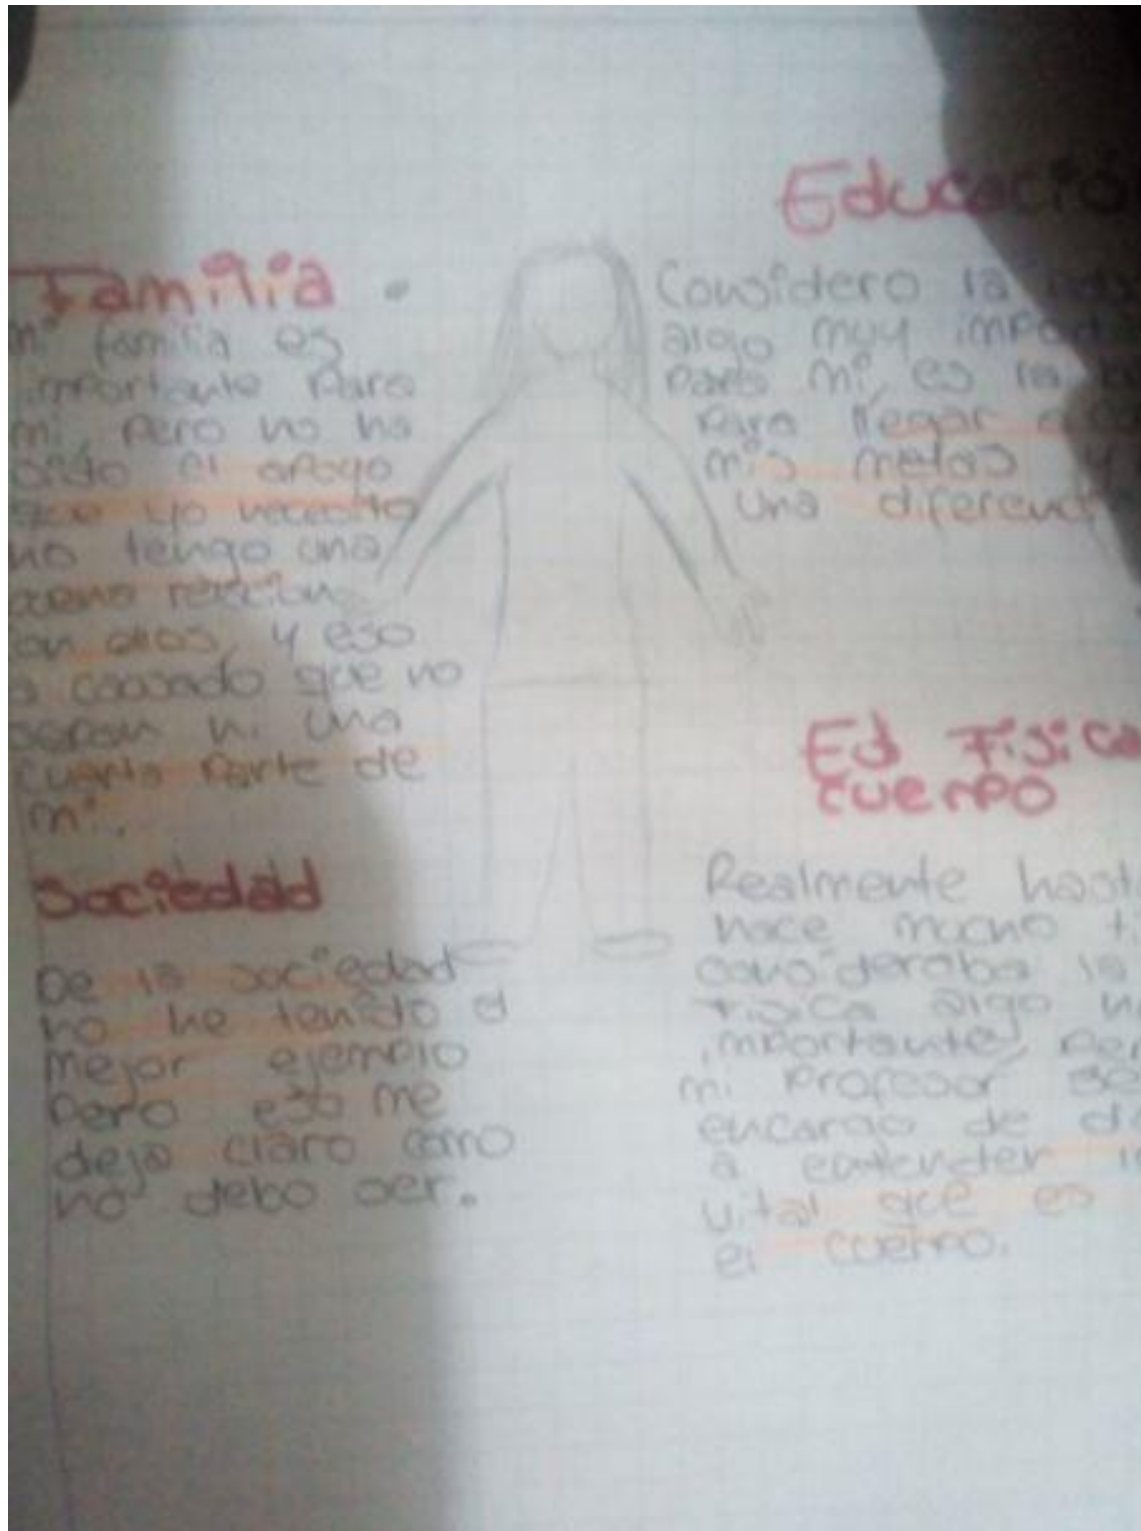 Familia.
mi familia es
importante para
mi, pero no ha
sido el apoyo
que yo necesito
no tengo una
con ellos, y eso
a causado que no
ni una
cuarta parte de
mi.
Sociedad
De la sociedad
no he tenido el
mejor ejemplo
pero eso me
deja claro como
no debo ser.
Educació
Considero la
algo muy import
para mi, es la
para llegar a
mis metas y
una diferenc
Ed Fisica
cuerpo
Realmente hast
hace mucho ti
consideraba la
fisica algo n
importante, per
mi profesor se
encargo de d
a entender lo
vital que es
el cuerpo.